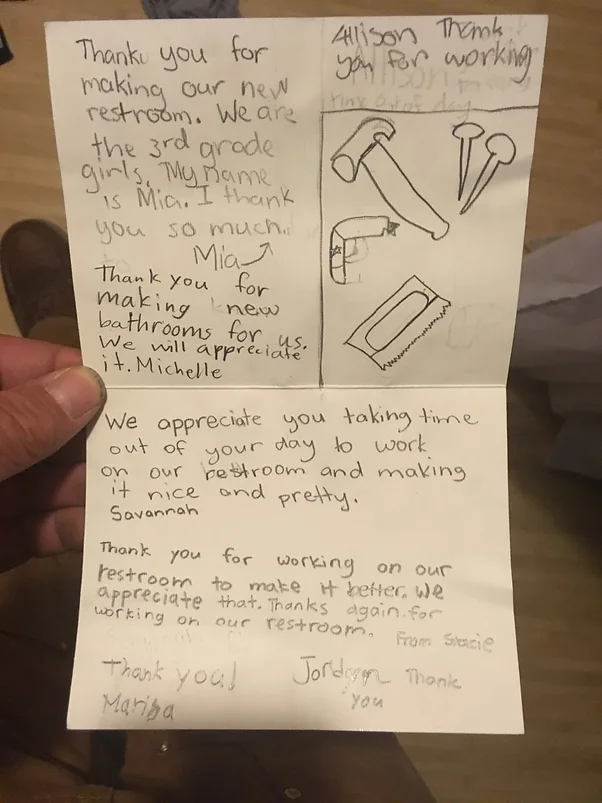 Thank you for
making our new
restroom. We are
the 3rd grade
girls, My name
is Mia. I thank
you so much.
Mia
Thank you for
making new
bathrooms for us.
We will appreciate
it. Michelle
Allison Thank
you for working
We appreciate you taking time
out of your day to work
on our restroom and making
it nice and pretty.
Savannah
Thank you for working on our
restroom to make it better. We
appreciate that. Thanks again for
working on our restroom.
From Stacie
Thank you!
Marisa
Jordan Thank
you